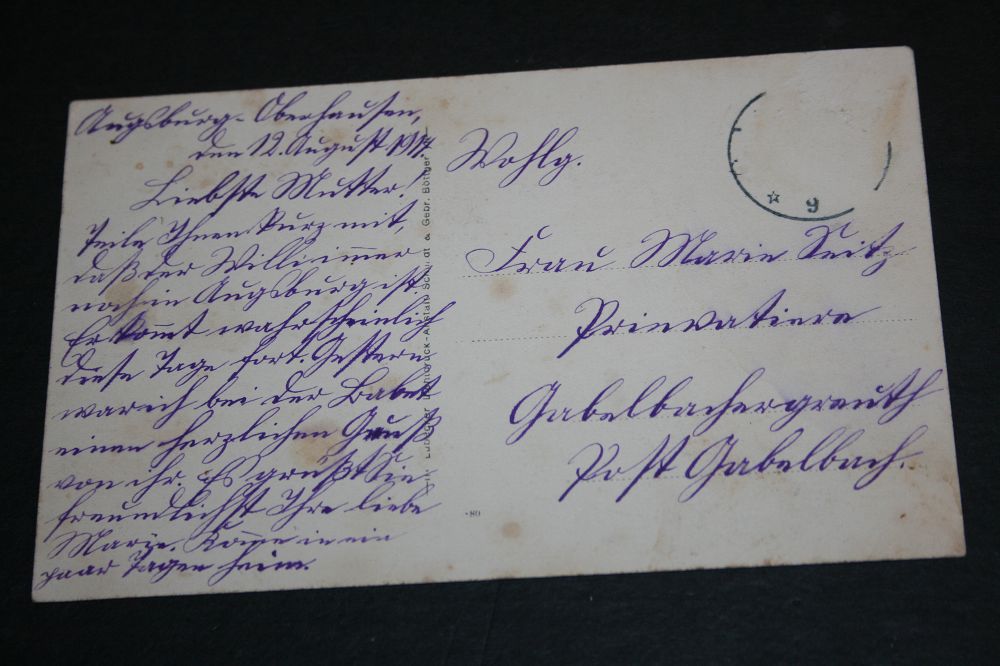 Augsburg-Oberhausen,
den 12. August 1917.
Liebste Mutter!
Teile Ihnen kurz mit,
daß der Willi immer
noch in Augsburg ist.
Er kommt wahrscheinlich
diese Tage fort. Gestern
war ich bei der Babet
einen herzlichen Gruß
von ihr. Es grüßt Sie
freundlichst Ihre liebe
Marie. Komme in ein
paar Tagen heim.
Gebr. Böttger
Wohlg.
Frau Marie Seitz
Prievatiere
Gabelbachergreuth
Post Gabelbach.
9
-80